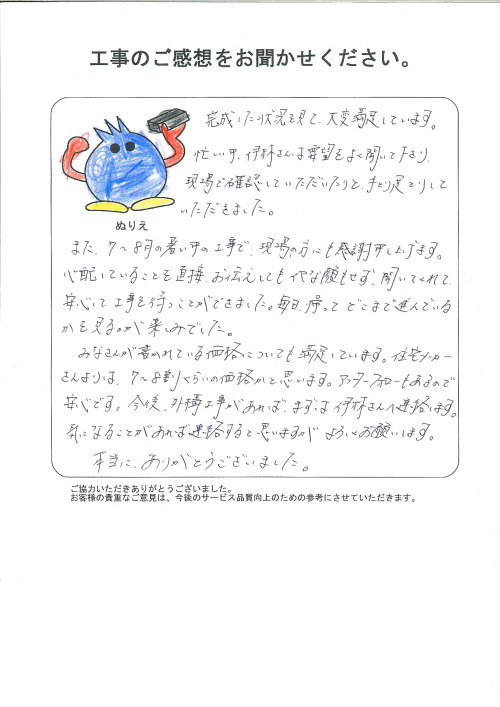 工事のご感想をお聞かせください。
完成した状況を見て、大変満足しています。
忙い中、伊林さんは要望をよく聞いて下さり、
現場で確認していただいたりと、手とり足とりして
いただきました。
ぬりえ
また、7〜8月の暑い中の工事で、現場の方にも感謝申し上げます。
心配していることを直接、お伝えしてもイヤな顔もせず、聞いてくれて、
安心して工事を行うことができました。毎日、帰って どこまで進んでいる
かを見るのが楽しみでした。
みなさんが書かれている価格についても満足しています。住宅メーカー
さんよりは、7〜8割くらいの価格かと思います。アフターフォローもあるので
安心です。今後、外構工事があれば、まずは伊林さんへ連絡します。
気になることがあれば連絡すると思いますが よろしくお願いします。
本当に、ありがとうございました。
ご協力いただきありがとうございました。
お客様の貴重なご意見は、今後のサービス品質向上のための参考にさせていただきます。